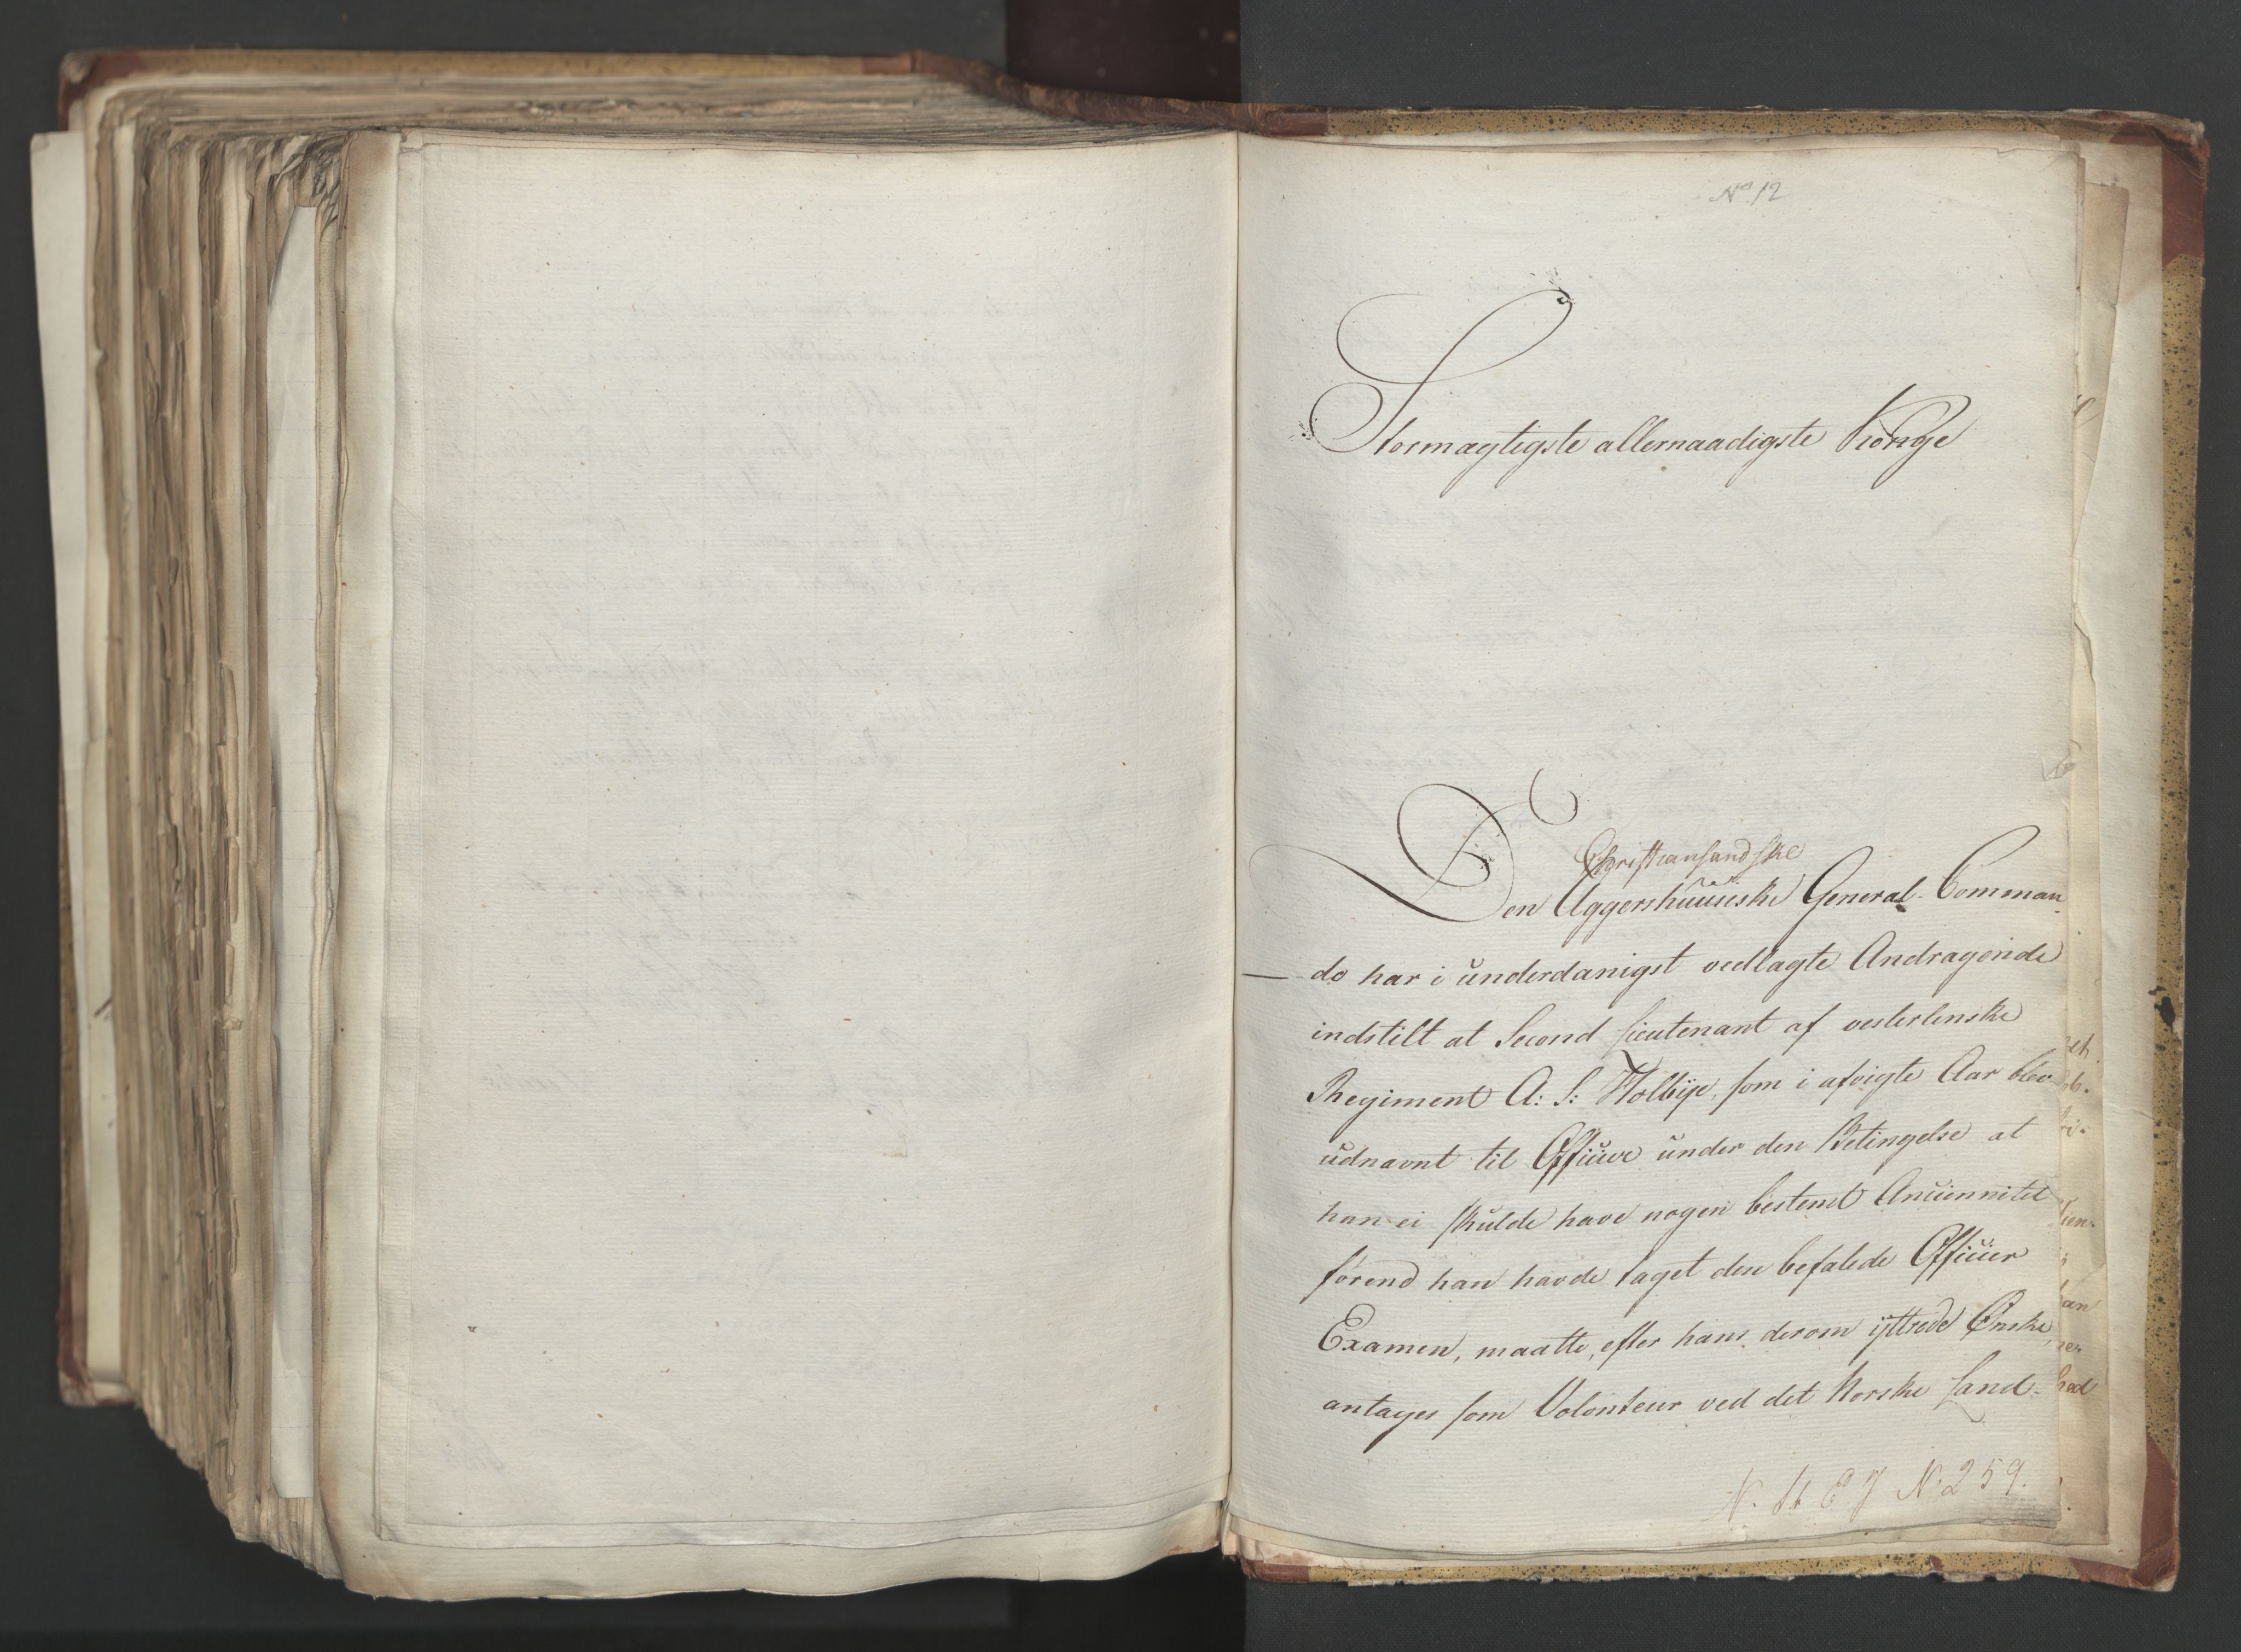 No. 12
Stormægtigste allernaadigste Konge
Christiansandske
Den Aggershuusiske General-Comman
do har i underdanigst vedlagte Andragende
indstilt at Second Lieutenant af vesterlenske
Regiment A: S: Holbye, som i afvigte Aar blev
udnævnt til Officier under den Betingelse at
han ei skulde have nogen bestemt Anciennitet
førend han havde taget den befalede Officier
Examen, maatte, efter hans derom yttrede Ønske,
antages som Volonteur ved det Norske Land-
N. 259.